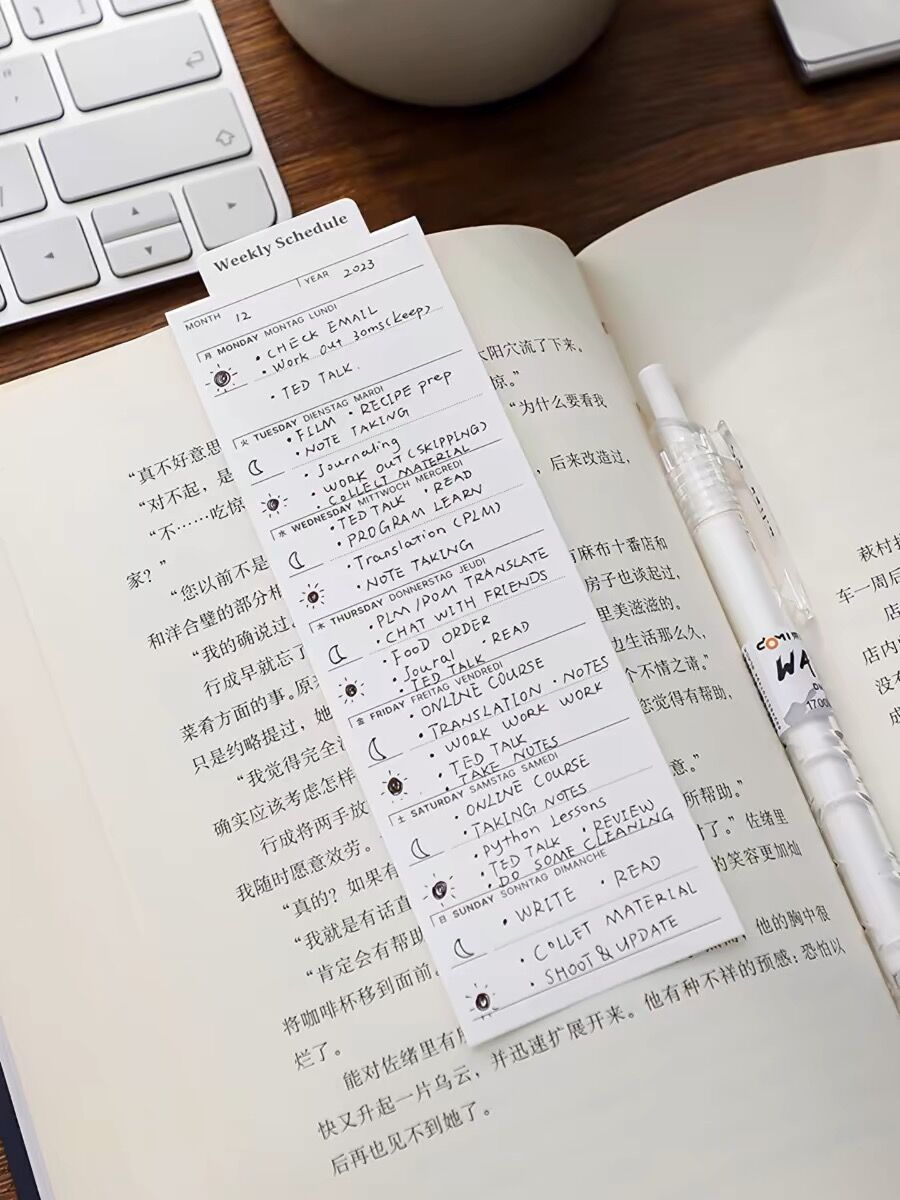 Weekly Schedule
MONTH 12 YEAR 2023
月 MONDAY MONTAG LUNDI
• CHECK EMAIL
• Work out 30ms(keep)
• TED TALK
火 TUESDAY DIENSTAG MARDI
• FILM • RECIPE prep
• NOTE TAKING
• Journaling
• WORK OUT (SKIPPING)
• COLLECT MATERIAL
水 WEDNESDAY MITTWOCH MERCREDI
• TED TALK • READ
• PROGRAM LEARN
• Translation (PLM)
• NOTE TAKING
木 THURSDAY DONNERSTAG JEUDI
• PLM/POM TRANSLATE
• CHAT WITH FRIENDS
• FOOD ORDER
• Joural • READ
• TED TALK
金 FRIDAY FREITAG VENDREDI
• ONLINE COURSE
• TRANSLATION • NOTES
• WORK WORK WORK
• TED TALK
• TAKE NOTES
土 SATURDAY SAMSTAG SAMEDI
• ONLINE COURSE
• TAKING NOTES
• python Lessons
• TED TALK • REVIEW
• DO SOME CLEANING
日 SUNDAY SONNTAG DIMANCHE
• WRITE • READ
• COLLET MATERIAL
• SHOOT & UPDATE
太阳穴流了下来，
惊。”
“真不好意思
“为什么要看我
“对不起，是
，后来改造过，
“不……吃惊
家？”
“您以前不是
有麻布十番店和
和洋合璧的部分村
房子也谈起过，
“我的确说过
里美滋滋的。
行成早就忘了
边生活那么久，
菜肴方面的事。原来
个不情之请。”
只是约略提过，她
您觉得有帮助，
“我觉得完全没
意。”
确实应该考虑怎样
所帮助。”
行成将两手放
对了。”佐绪里
我随时愿意效劳。
的笑容更加灿
“真的？如果有
“我就是有话直
，他的胸中很
“肯定会有帮助
他有种不祥的预感：恐怕以
将咖啡杯移到面前。
并迅速扩展开来。
烂了。
能对佐绪里有所
快又升起一片乌云，
后再也见不到她了。
荻村
车一周后
店
店内
没不
成
WA
1700